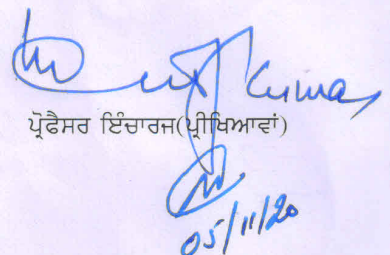 Kumar
ਪ੍ਰੋਫੈਸਰ ਇੰਚਾਰਜ(ਪ੍ਰੀਖਿਆਵਾਂ)
05/11/20